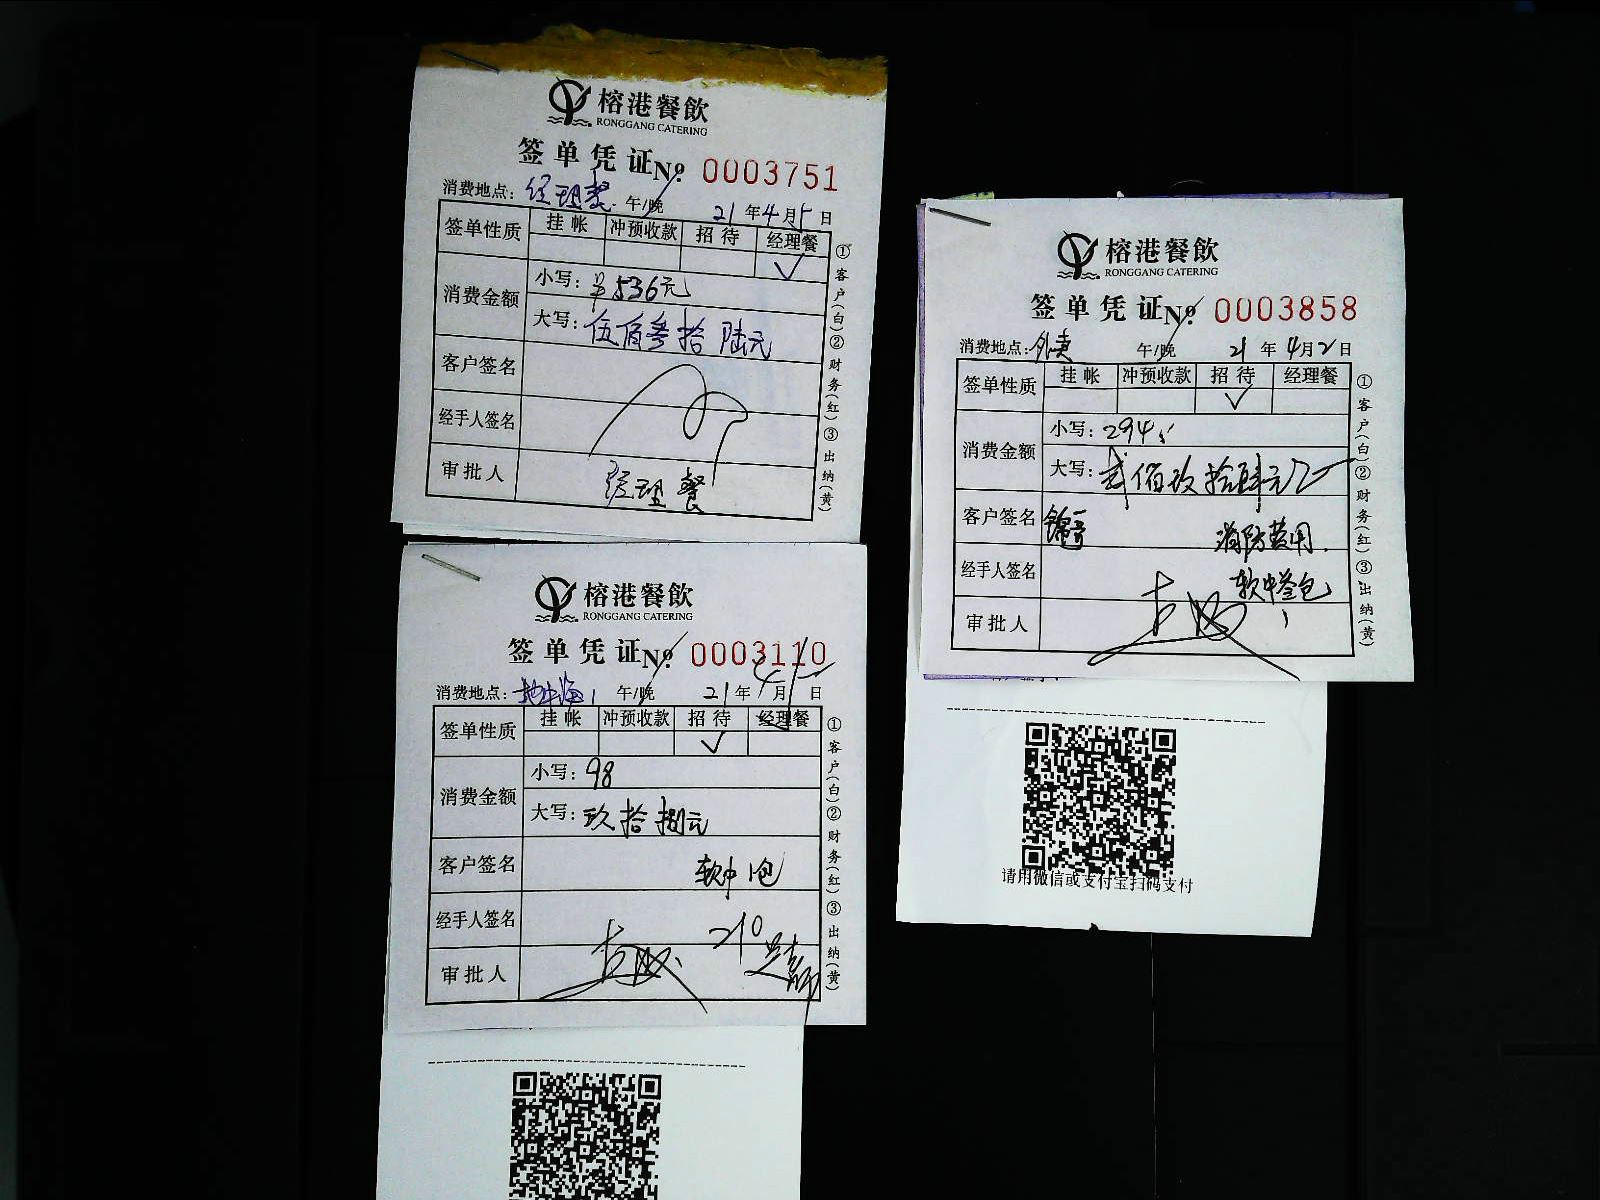 榕港餐飲
RONGGANG CATERING
签单凭证 No. 0003751
消费地点: 经理餐 午/晚 21年4月5日
签单性质 挂帐 冲预收款 招待 经理餐
✓
消费金额 小写: ¥536元
大写: 伍佰叁拾陆元
客户签名
经手人签名
审批人 经理餐
①客户(白)②财务(红)③出纳(黄)
榕港餐飲
RONGGANG CATERING
签单凭证 No. 0003110
消费地点: 地中海1 午/晚 21年4月1日
签单性质 挂帐 冲预收款 招待 经理餐
✓
消费金额 小写: 98
大写: 玖拾捌元
客户签名 软中1包
经手人签名 210
审批人
①客户(白)②财务(红)③出纳(黄)
榕港餐飲
RONGGANG CATERING
签单凭证 No. 0003858
消费地点: 外卖 午/晚 21年4月2日
签单性质 挂帐 冲预收款 招待 经理餐
✓
消费金额 小写: 294
大写: 贰佰玖拾肆元
客户签名 锦 消防费用
经手人签名 软中叁包
审批人
①客户(白)②财务(红)③出纳(黄)
请用微信或支付宝扫码支付